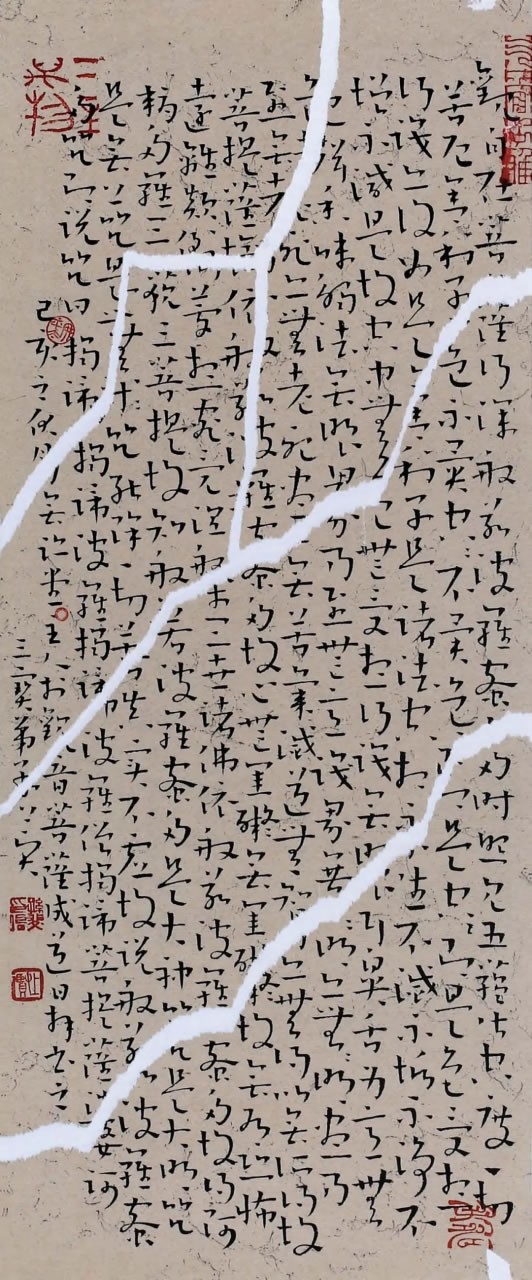 觀自在菩薩行深般若波羅蜜多時照見五蘊皆空度一切
苦厄舍利子色不異空空不異色色即是空空即是色受想
行識亦復如是舍利子是諸法空相不生不滅不垢不淨不
增不減是故空中無色無受想行識無眼耳鼻舌身意無
色聲香味觸法無眼界乃至無意識界無無明亦無無明盡乃
至無老死亦無老死盡無苦集滅道無智亦無得以無所得故
菩提薩埵依般若波羅蜜多故心無罣礙無罣礙故無有恐怖
遠離顛倒夢想究竟涅槃三世諸佛依般若波羅蜜多故得阿
耨多羅三藐三菩提故知般若波羅蜜多是大神咒是大明咒
是無上咒是無等等咒能除一切苦真實不虛故說般若波羅蜜
多咒即說咒曰揭諦揭諦波羅揭諦波羅僧揭諦菩提薩婆訶
己亥之伏月觀音菩薩成道日拜書之
三寶弟子